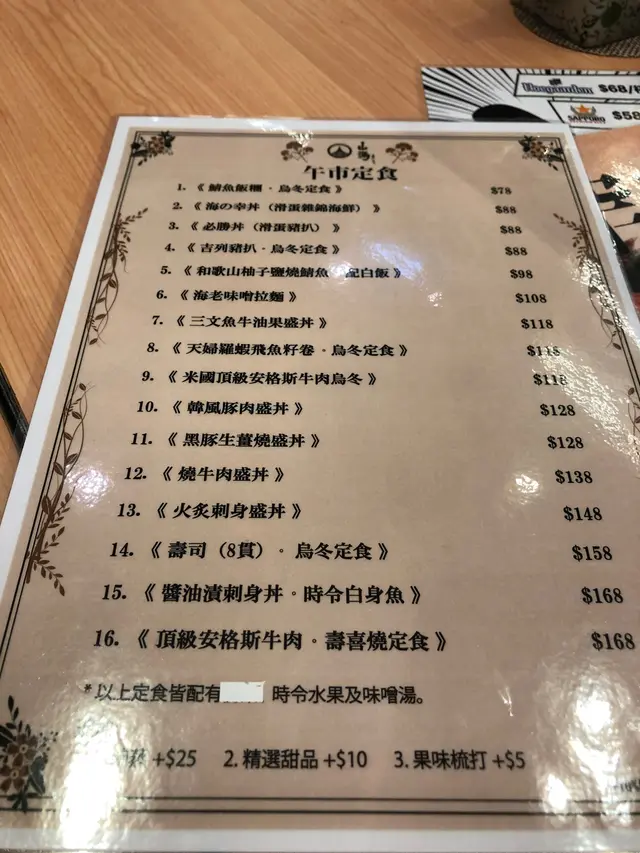 Hoegaarden $68/
SAPPORO $58
午市定食
1. 《 鯖魚飯糰 · 烏冬定食 》 $78
2. 《 海の幸丼 (滑蛋雜錦海鮮) 》 $88
3. 《 必勝丼 (滑蛋豬扒) 》 $88
4. 《 吉列豬扒 · 烏冬定食 》 $88
5. 《 和歌山柚子鹽燒鯖魚 配白飯 》 $98
6. 《 海老味噌拉麵 》 $108
7. 《 三文魚牛油果盛丼 》 $118
8. 《 天婦羅蝦飛魚籽卷 · 烏冬定食 》 $118
9. 《 米國頂級安格斯牛肉烏冬 》 $118
10. 《 韓風豚肉盛丼 》 $128
11. 《 黑豚生薑燒盛丼 》 $128
12. 《 燒牛肉盛丼 》 $138
13. 《 火炙刺身盛丼 》 $148
14. 《 壽司 (8貫) · 烏冬定食 》 $158
15. 《 醬油漬刺身丼 · 時令白身魚 》 $168
16. 《 頂級安格斯牛肉 · 壽喜燒定食 》 $168
*以上定食皆配有 時令水果及味噌湯。
+$25 2. 精選甜品 +$10 3. 果味梳打 +$5